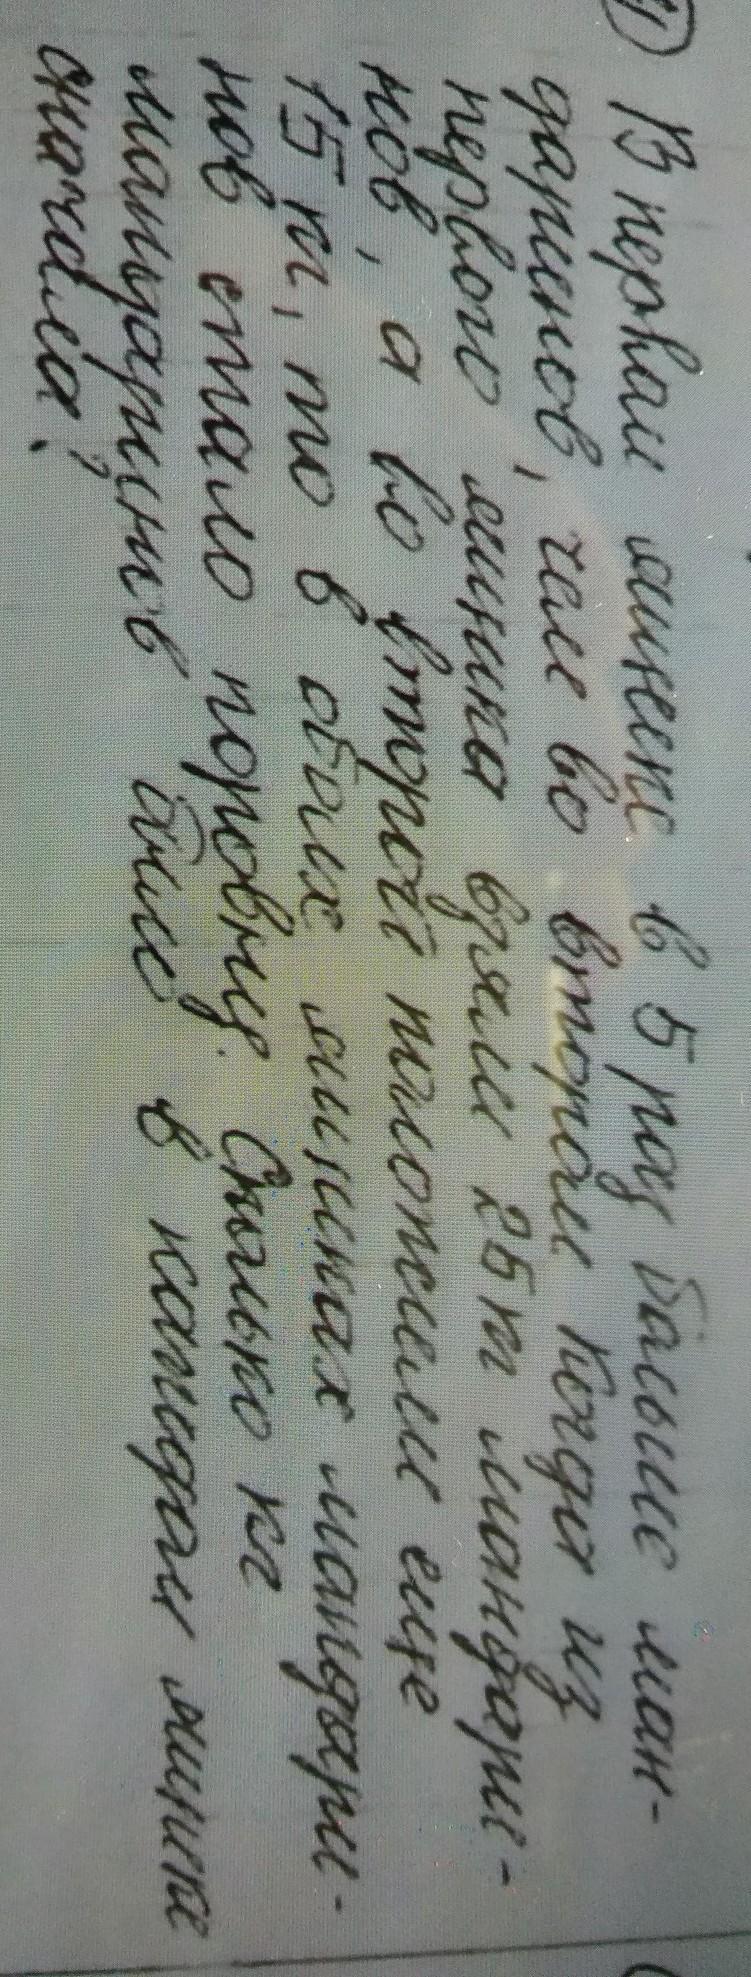 1) В первом ящике в 5 раз больше ман-
даринов, чем во втором. Когда из
первого ящика взяли 25 кг мандари-
нов, а во второй положили еще
15 кг, то в обоих ящиках мандари-
нов стало поровну. Сколько кг
мандаринов было в каждом ящике
сначала?